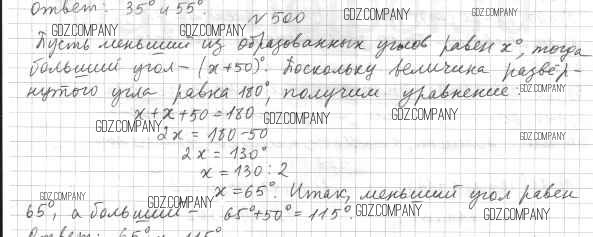 Ответ: 35° и 55°.
№ 500 GDZ.COMPANY GDZ.COMPANY
GDZ.COMPANY GDZ.COMPANY
Пусть меньший из образованных углов равен x°, тогда
больший угол – (x+50)°. Поскольку величина развёр-
нутого угла равна 180°, получим уравнение: GDZ.COMPANY
x + x + 50 = 180
GDZ.COMPANY GDZ.COMPANY GDZ.COMPANY
2x = 180-50 GDZ.COMPANY
2x = 130°
x = 130 : 2
x = 65°. Итак, меньший угол равен
GDZ.COMPANY GDZ.COMPANY
65°, а больший – 65°+50° = 115°. GDZ.COMPANY GDZ.COMPANY
Ответ: 65° и 115°.